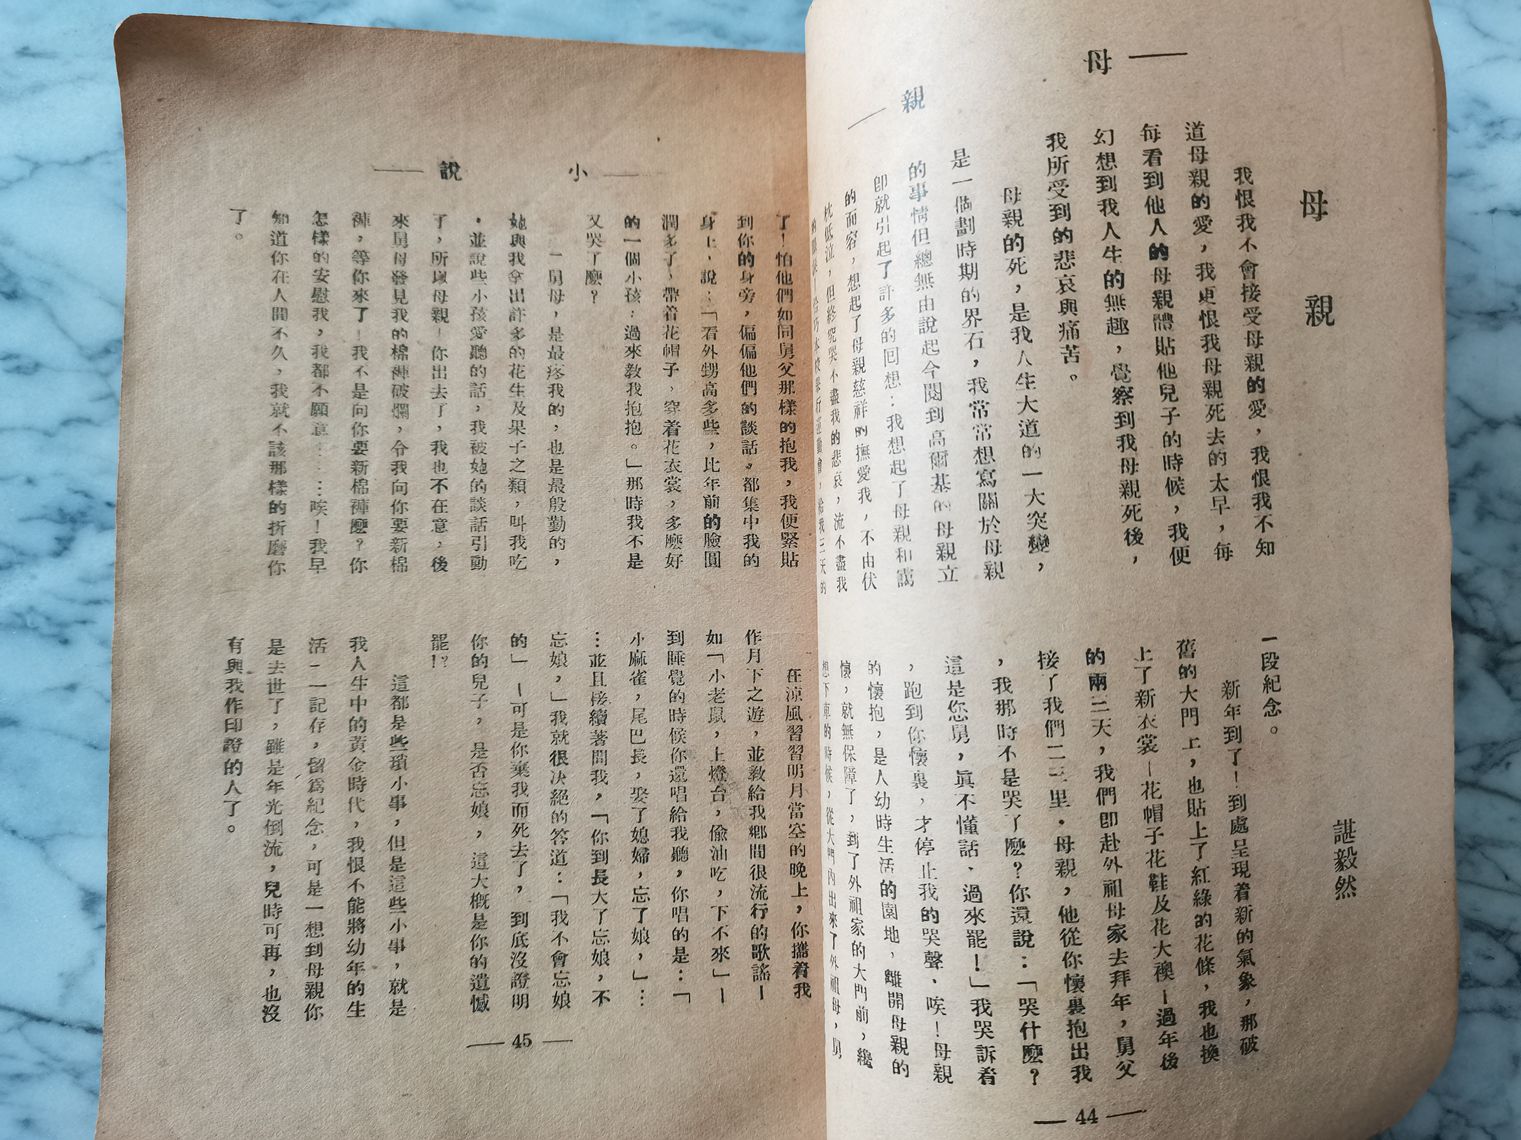 母親
母親
諶毅然
我恨我不會接受母親的愛，我恨我不知
道母親的愛，我更恨我母親死去的太早，每
每看到他人的母親體貼他兒子的時候，我便
幻想到我人生的無趣，覺察到我母親死後，
我所受到的悲哀與痛苦。
母親的死，是我人生大道的一大突變，
是一個劃時期的界石，我常常想寫關於母親
的事情但總無由說起今閱到高爾基的母親立
卽就引起了許多的回想：我想起了母親和靄
的面容，想起了母親慈祥的撫愛我，不由伏
枕低泣，但終究哭不盡我的悲哀，流不盡我
一段紀念。
新年到了！到處呈現着新的氣象，那破
舊的大門上，也貼上了紅綠的花條，我也換
上了新衣裳—花帽子花鞋及花大襖—過年後
的兩三天，我們卽赴外祖母家去拜年，舅父
接了我們二三里，母親，他從你懷裏抱出我
，我那時不是哭了麽？你還說：「哭什麽？
這是您舅，眞不懂話，過來罷！」我哭訴着
，跑到你懷裏，才停止我的哭聲，唉！母親
的懷抱，是人幼時生活的園地，離開母親的
懷，就無保障了，到了外祖家的大門前，纔
想下車的時候，從大門內出來了外祖母，舅
— 44 —
小說
了！怕他們如同舅父那樣的抱我，我便緊貼
到你的身旁，偏偏他們的談話，都集中我的
身上，說：「看外甥高多些，比年前的臉圓
潤多了，帶着花帽子，穿着花衣裳，多麽好
的一個小孩；過來教我抱抱。」那時我不是
又哭了麽？
舅母，是最疼我的，也是最殷勤的，
她與我拿出許多的花生及果子之類，叫我吃
，並說些小孩愛聽的話，我被她的談話引動
了，所以母親—你出去了，我也不在意，後
來舅母發見我的棉褲破爛，令我向你要新棉
褲，等你來了—我不是向你要新棉褲麽？你
怎樣的安慰我，我都不願意……唉！我早
知道你在人間不久，我就不該那樣的折磨你
了。
在涼風習習明月當空的晚上，你攜着我
作月下之遊，並教給我鄉間很流行的歌謠—
如「小老鼠，上燈台，偷油吃，下不來」—
到睡覺的時候你還唱給我聽，你唱的是：「
小麻雀，尾巴長，娶了媳婦，忘了娘，」…
…並且接續著問我，「你到長大了忘娘，不
忘娘，」我就很決絕的答道：「我不會忘娘
的」—可是你棄我而死去了，到底沒證明
你的兒子，是否忘娘，這大概是你的遺憾
罷？
這都是些瑣小事，但是這些小事，就是
我人生中的黃金時代，我恨不能將幼年的生
活一一記存，留爲紀念，可是一想到母親你
是去世了，雖是年光倒流，兒時可再，也沒
有與我作印證的人了。
— 45 —